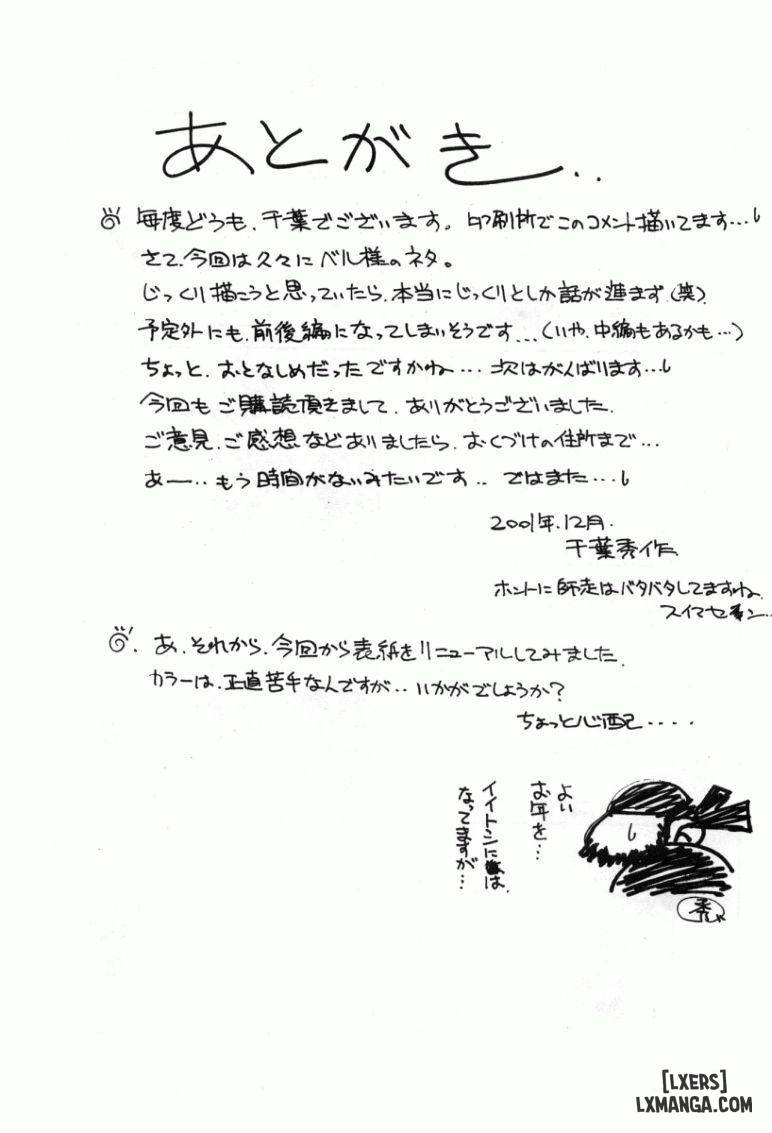 あとがき..
毎度どうも、千葉でございます。印刷所でこのコメント描いてます…
さて、今回は久々にベル様のネタ。
じっくり描こうと思っていたら、本当にじっくりとしか話が進まず(笑).
予定外にも、前後編になってしまいそうです...(いや、中編もあるかも…)
ちょっと、おとなしめだったですかね…次はがんばります…
今回もご購読頂きまして、ありがとうございました.
ご意見、ご感想などありましたら、おくづけの住所まで…
あー‥もう時間がないみたいです‥ではまた…
2001年.12月.
千葉秀作
ホントに師走はバタバタしてますね.
スイマセン…
あ、それから、今回から表紙をリニューアルしてみました.
カラーは、正直苦手なんですが‥いかがでしょうか?
ちょっと心配....
よい
お年を…
イイトシには、
なってますが…
秀
[LXERS]
LXMANGA.COM